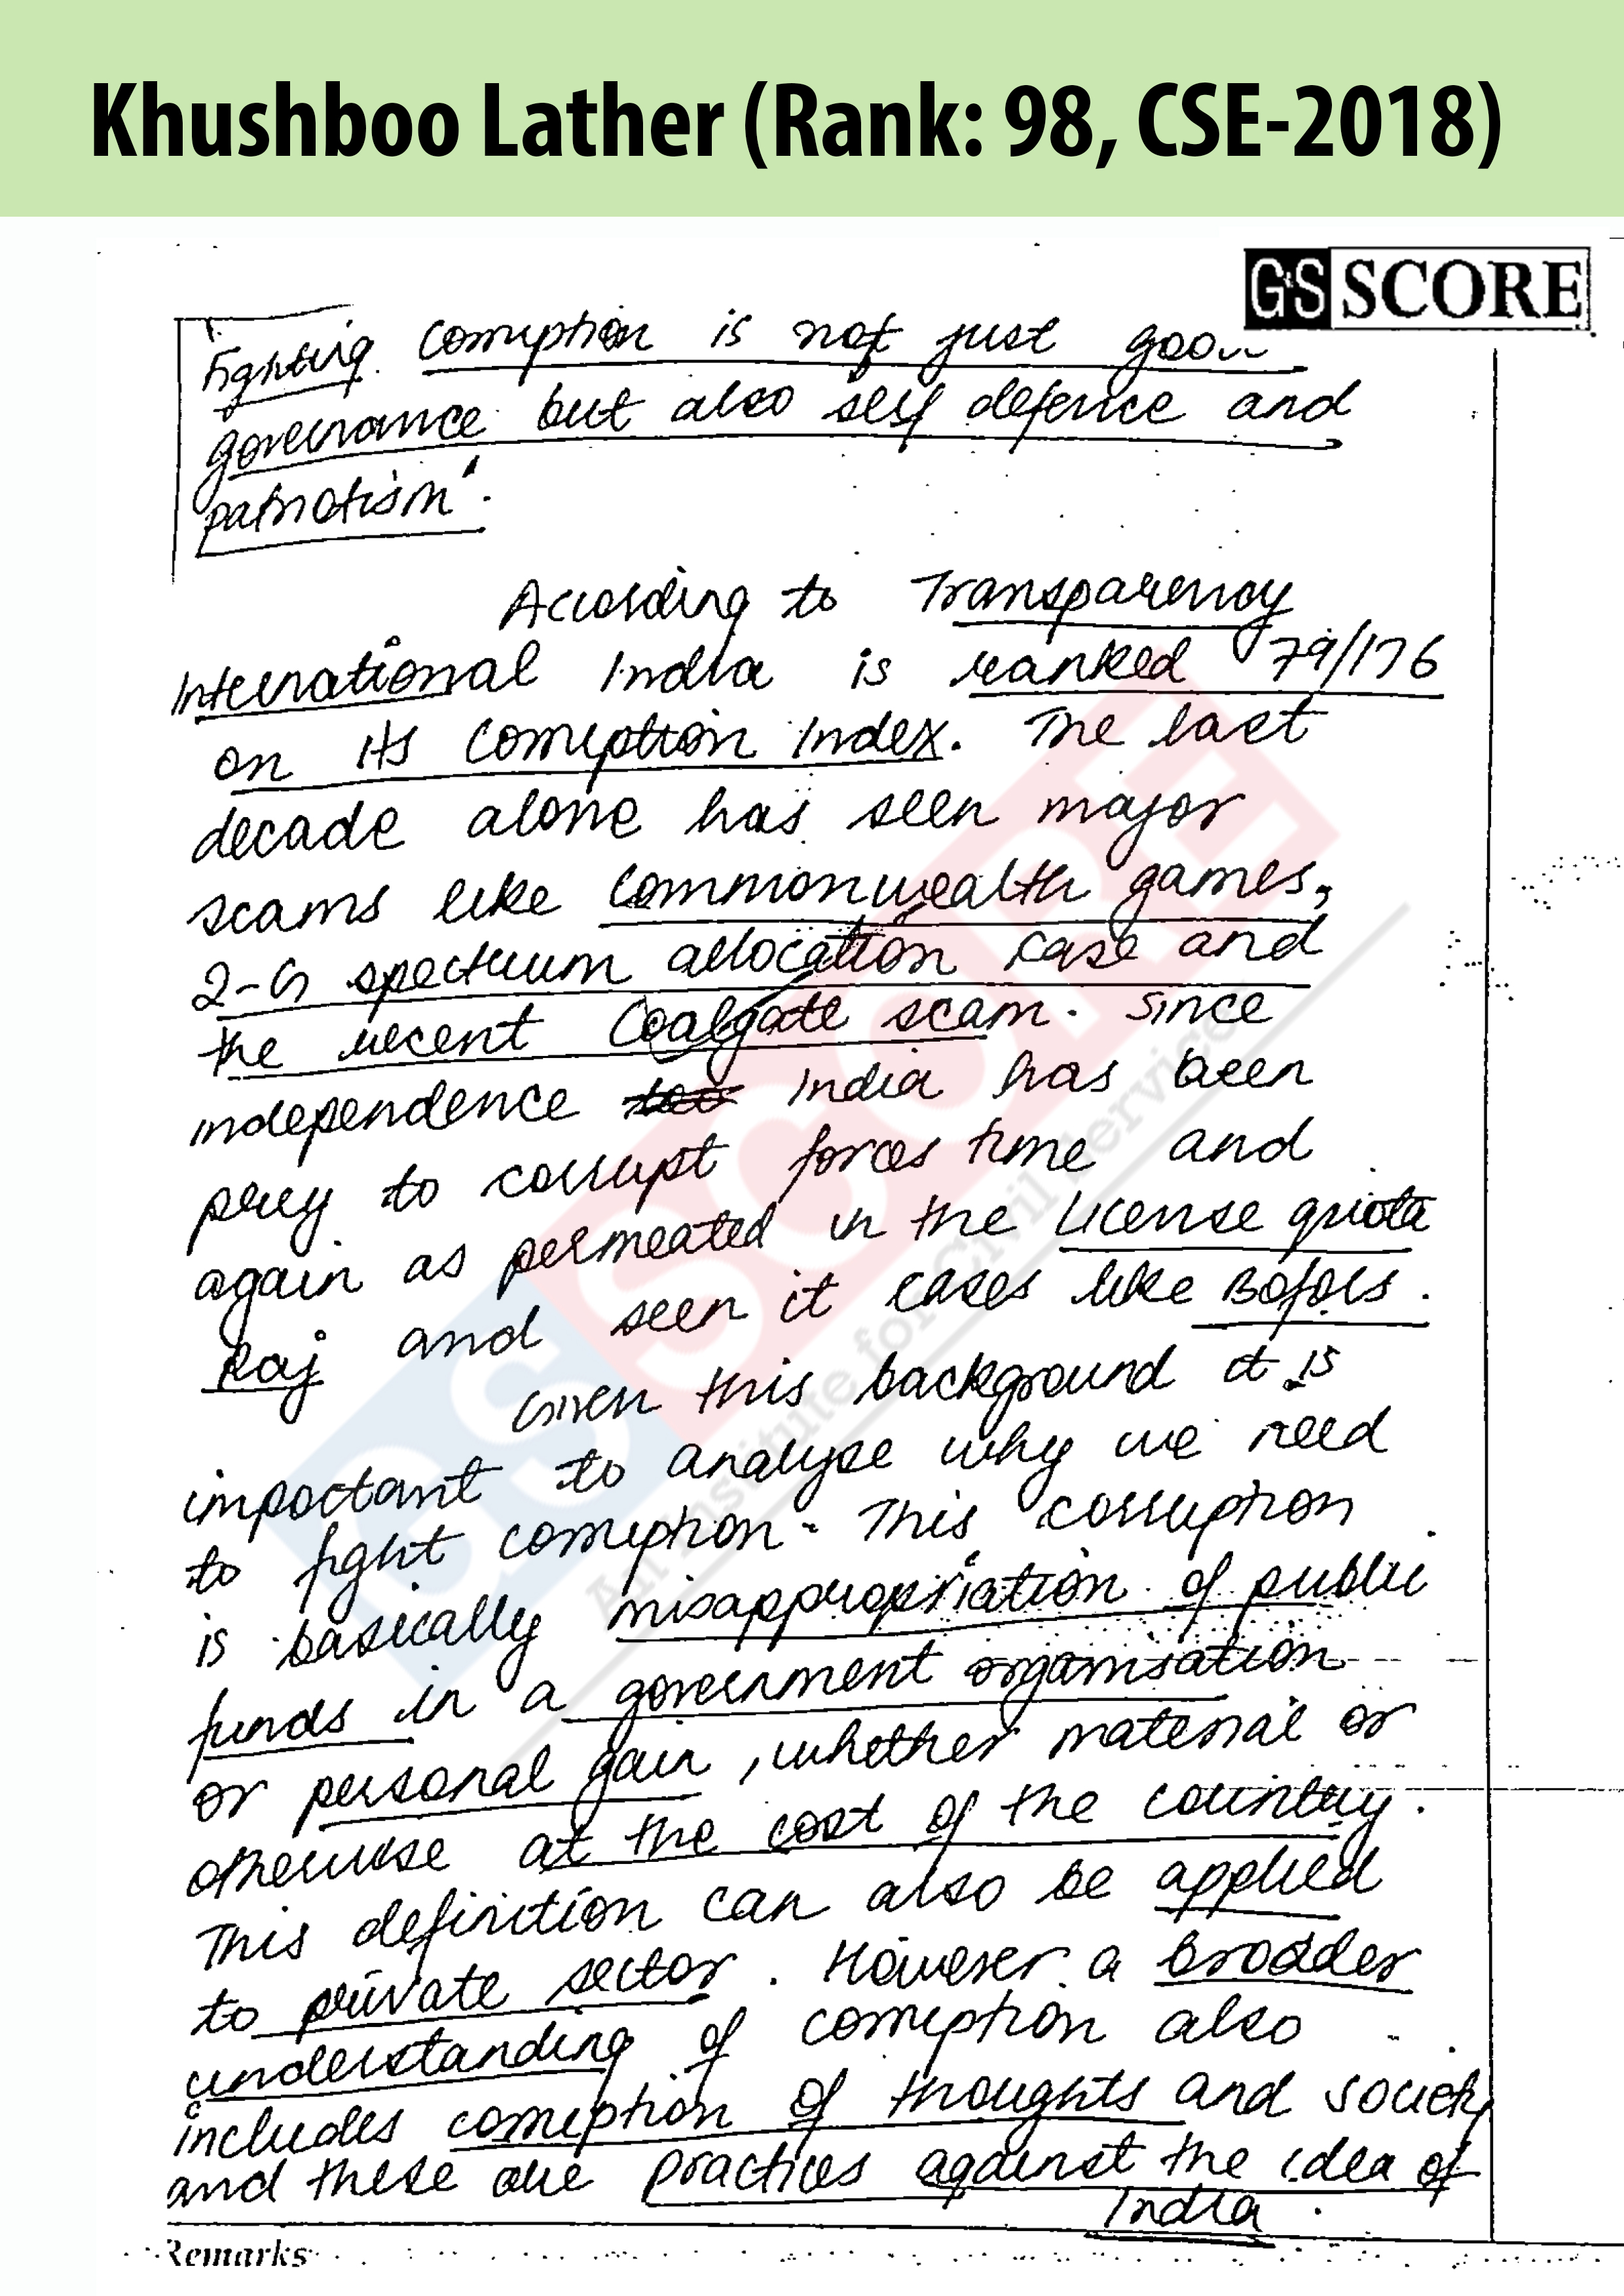 Khushboo Lather (Rank: 98, CSE-2018)
GS SCORE
Fighting corruption is not just good
governance but also self defence and
patriotism".
According to Transparency
International India is ranked 79/176
on its corruption Index. The last
decade alone has seen major
scams like Commonwealth games,
2-G spectrum allocation case and
the recent Coalgate scam. Since
independence India has been
prey to corrupt forces time and
again as permeated in the License quota
Raj and seen it cases like Bofors.
Given this background it is
important to analyse why we need
to fight corruption. This corruption
is basically misappropriation of public
funds in a government organisation
or personal gain, whether material or
otherwise at the cost of the country.
This definition can also be applied
to private sector. However a broader
understanding of corruption also
includes corruption of thoughts and society
and these are practices against the idea of
India.
Remarks
GS SCORE
An Institute for Civil Services